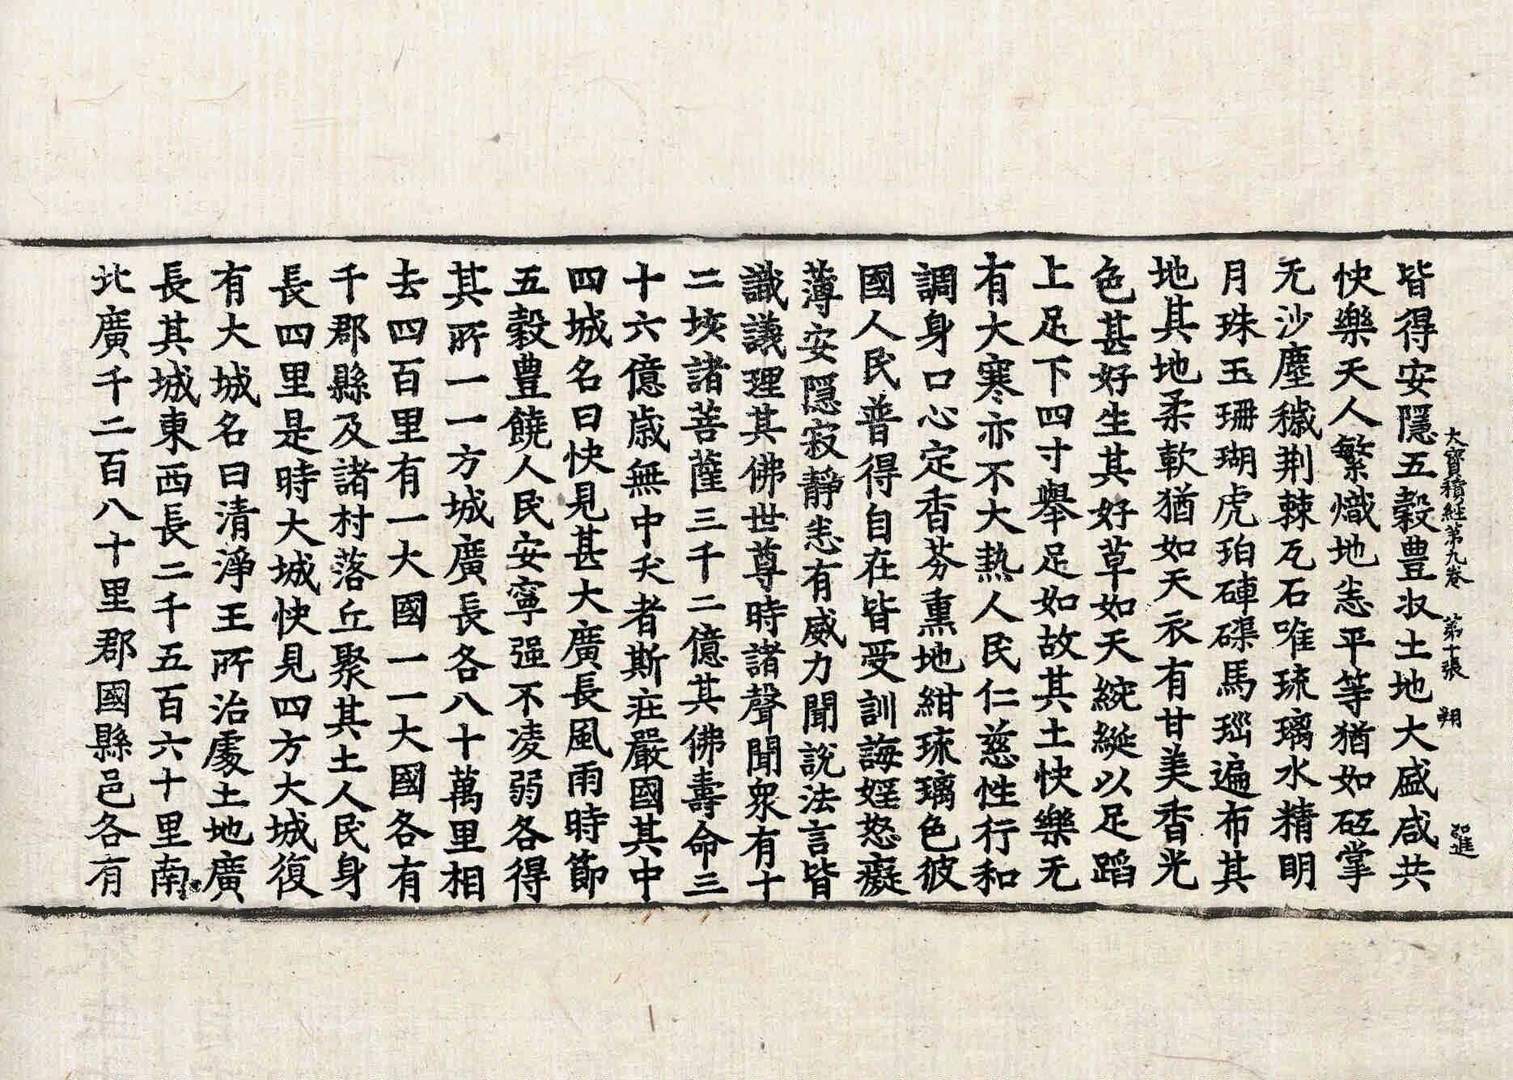 大寶積經第九卷 第十張 翔
皆得安隱五穀豊妀土地大盛咸共
快樂天人繁熾地恙平等猶如砥掌
无沙塵穢荆棘瓦石唯琉璃水精明
月珠玉珊瑚虎珀硨磲馬瑙遍布其
地其地柔軟猶如天衣有甘美香光
色甚好生其好草如天綩綖以足蹈
上足下四寸舉足如故其土快樂无
有大寒亦不大熱人民仁慈性行和
調身口心定香芬熏地紺琉璃色彼
國人民普得自在皆受訓誨婬怒癡
薄安隱寂靜恙有威力聞說法言皆
識議理其佛世尊時諸聲聞衆有十
二垓諸菩薩三千二億其佛壽命三
十六億歲無中夭者斯庄嚴國其中
四城名曰快見甚大廣長風雨時節
五穀豊饒人民安寧强不凌弱各得
其所一一方城廣長各八十萬里相
去四百里有一大國一一大國各有
千郡縣及諸村落丘聚其土人民身
長四里是時大城快見四方大城復
有大城名曰清淨王所治處土地廣
長其城東西長二千五百六十里南
北廣千二百八十里郡國縣邑各有